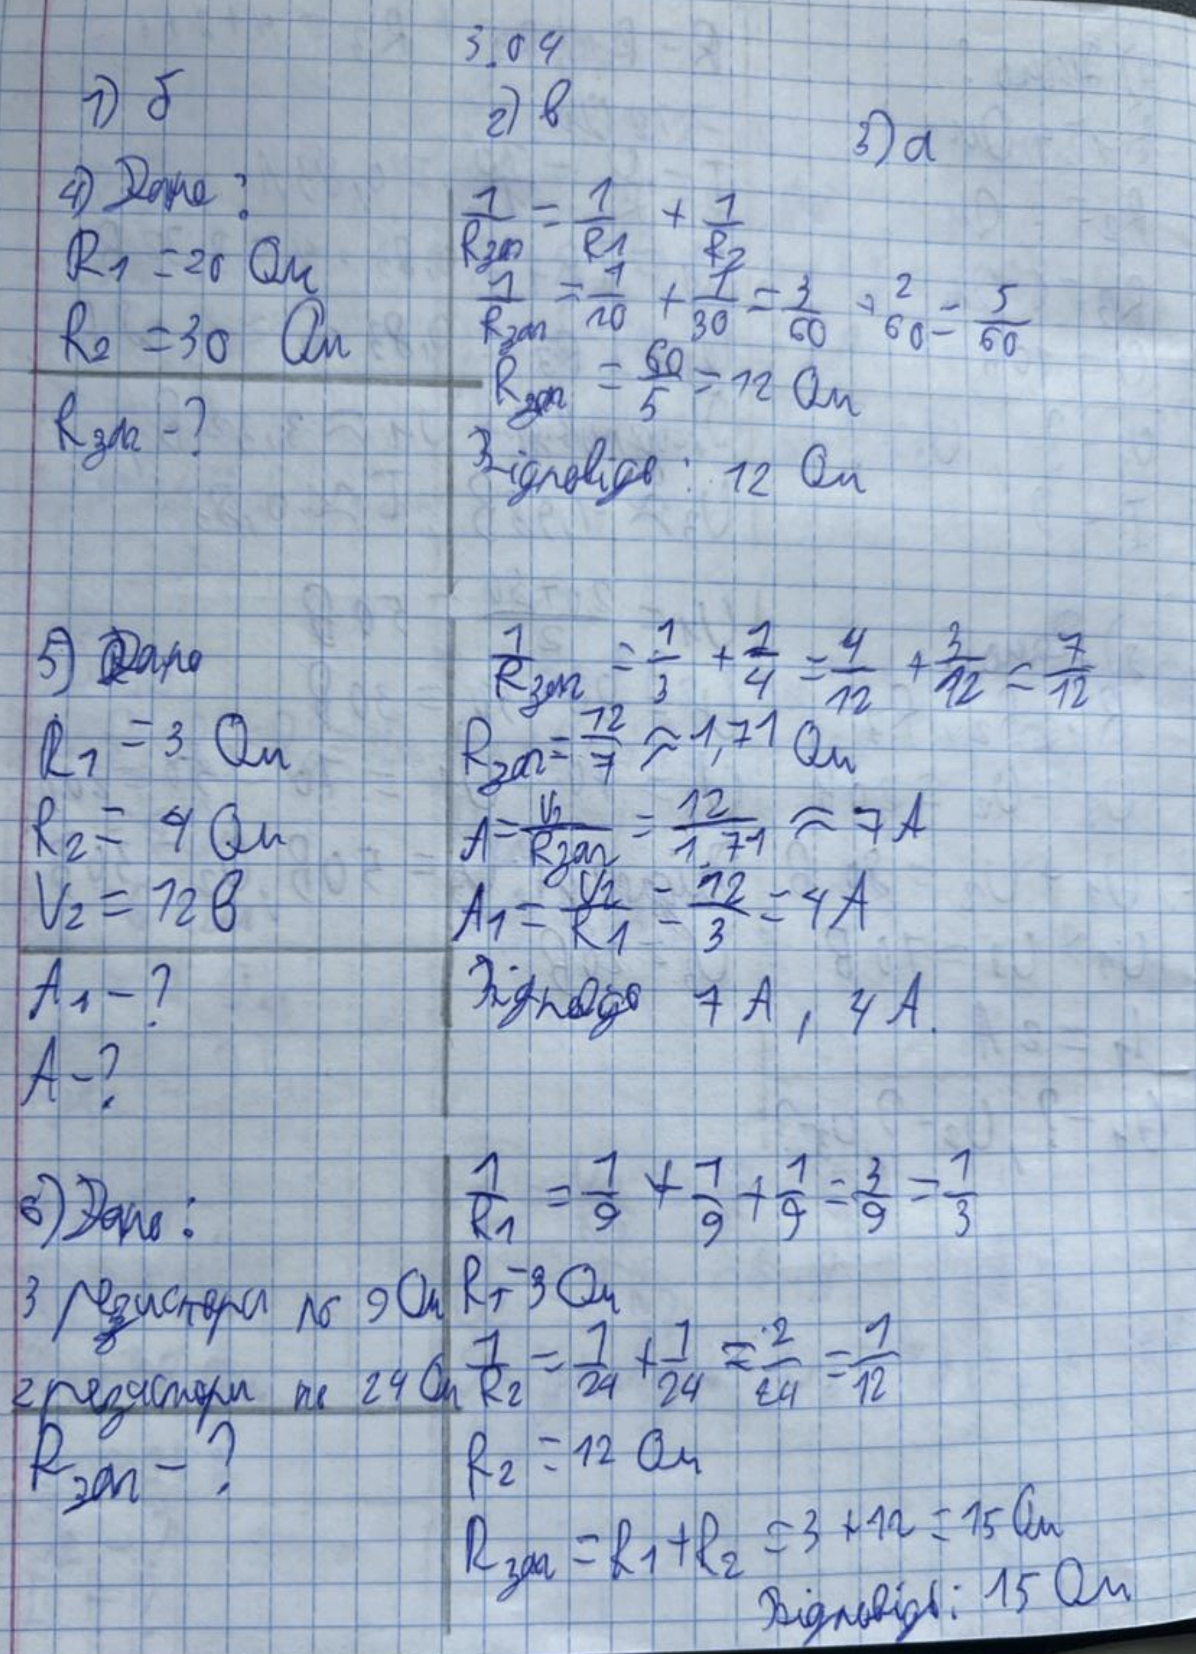 3.04
1) б
2) в
3) а
4) Дано:
R1 = 20 Ом
R2 = 30 Ом
Rзаг - ?
1/Rзаг = 1/R1 + 1/R2
1/Rзаг = 1/20 + 1/30 = 3/60 + 2/60 = 5/60
Rзаг = 60/5 = 12 Ом
Відповідь: 12 Ом
5) Дано
R1 = 3 Ом
R2 = 4 Ом
V2 = 12 В
A1 - ?
A - ?
1/Rзаг = 1/3 + 1/4 = 4/12 + 3/12 = 7/12
Rзаг = 12/7 ≈ 1,71 Ом
A = V2/Rзаг = 12/1,71 ≈ 7 A
A1 = V2/R1 = 12/3 = 4 A
Відповідь 7 A, 4 A.
6) Дано:
3 резистори по 9 Ом
2 резистори по 24 Ом
Rзаг - ?
1/R1 = 1/9 + 1/9 + 1/9 = 3/9 = 1/3
R1 = 3 Ом
1/R2 = 1/24 + 1/24 = 2/24 = 1/12
R2 = 12 Ом
Rзаг = R1 + R2 = 3 + 12 = 15 Ом
Відповідь: 15 Ом